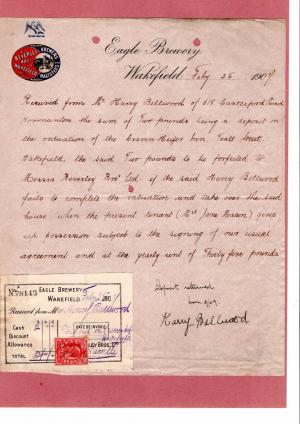 Eagle Brewery
Wakefield Feby 25 1907
Received from Mr Harry Bellwood of 218 Castleford Road
Normanton the sum of Two pounds being a deposit in
the valuation of the Craven Heifer Inn, Teall Street,
Wakefield, the said Two pounds to be forfeited to
Messrs Beverley Bros Ltd. if the said Harry Bellwood
fails to complete the valuation and take over the said
house when the present tenant (Mrs Jane Mason) gives
up possession subject to the signing of our usual
agreement and at the yearly rent of Thirty five pounds
Deposit returned
Harry Bellwood
No 78145
EAGLE BREWERY
WAKEFIELD 190
Received from Mr Harry Bellwood
Cash
Discount
Allowance
TOTAL
DATE OF INVOICE